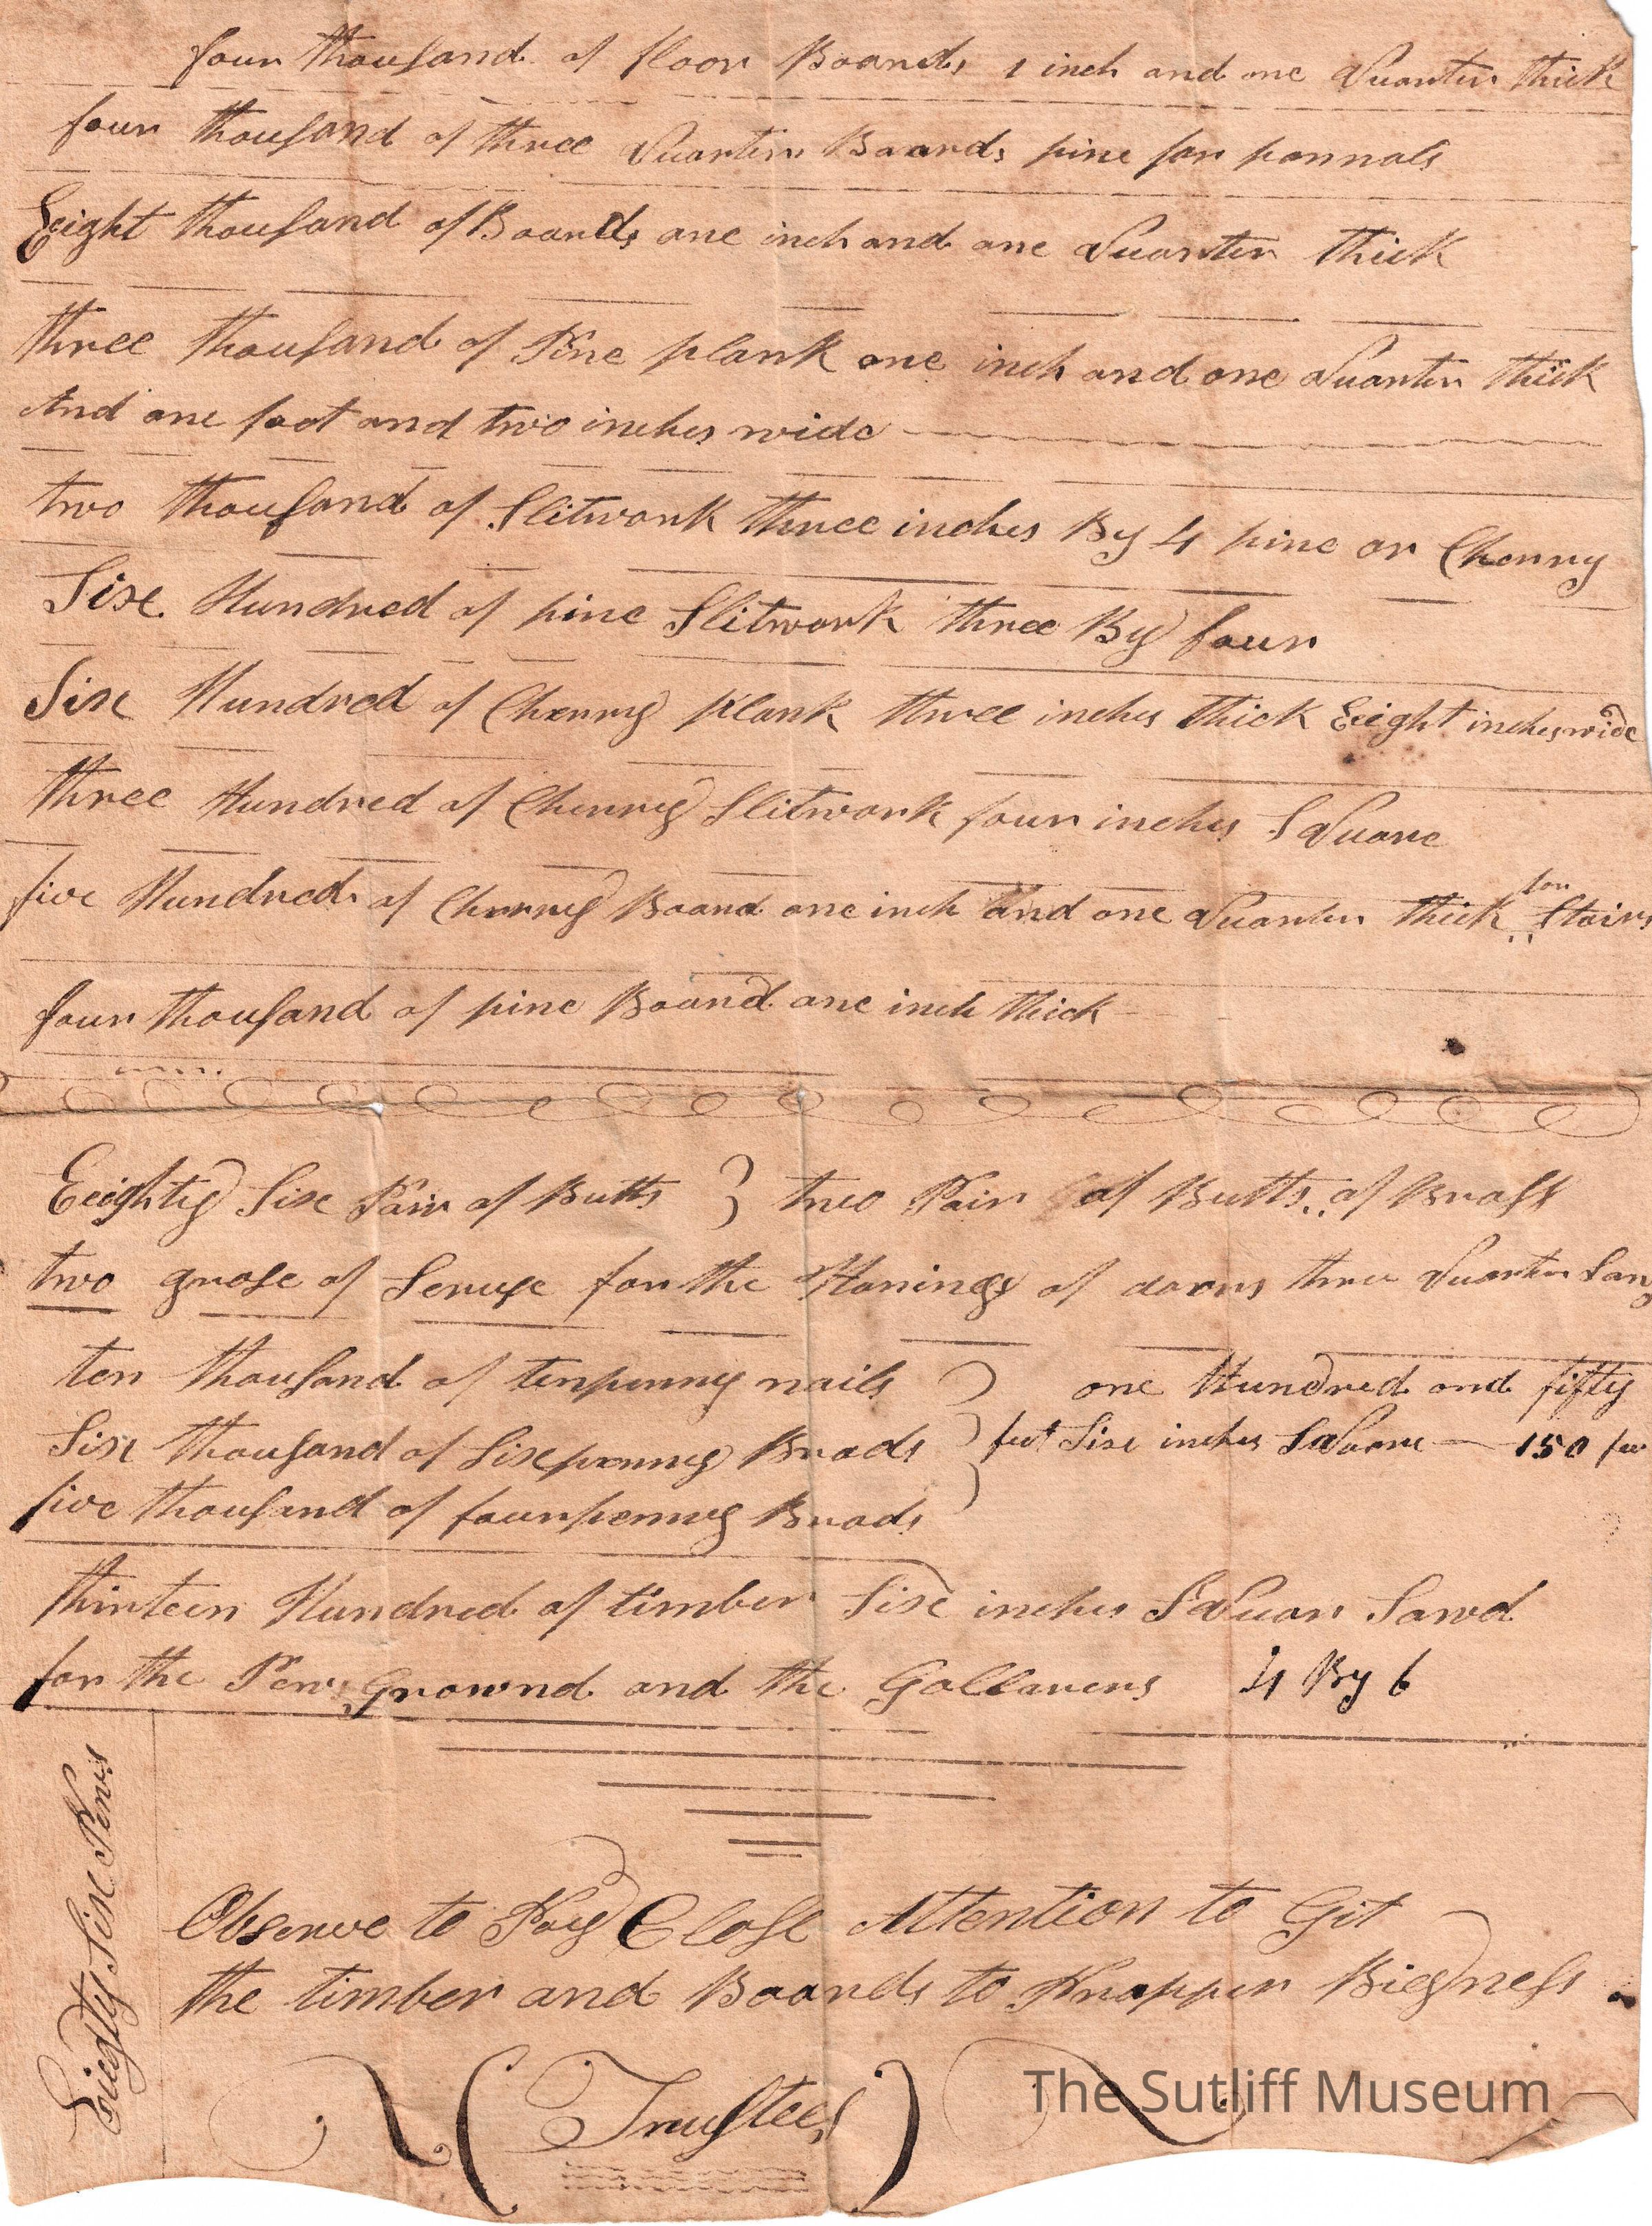 four thousand of floor Boards 1 inch and one Quarter thick
four thousand of three Quarters Boards pine for pannals
Eeight thousand of Boards one inch and one Quarter thick
three thousand of Pine plank one inch and one Quarter thick
And one foot and two inches wide
two thousand of Slitwork three inches By 4 pine or Cherry
Sixe Hundred of pine Slitwork three By four
Sixe Hundred of Cherry plank three inches thick Eeight inches wide
three Hundred of Cherry Slitwork four inches SQuare
five Hundred of Cherry Board one inch And one Quarter thick for Stairs
four thousand of pine Board one inch thick
Eeighty Sixe Pair of Butts } two Pair of Butts of Brass
two grose of Scruse for the Haninges of doors three Quarter Long
ten thousand of tenpenny nails } one Hundred and fifty
Sixe thousand of Sixepenny Brads } feet Sixe inches SQuare — 150 fee
five thousand of fourpenny Brads }
thirteen Hundred of timber Sixe inches SQuar Sawd
for the Pews Grownd and the Gallarers 4 By 6
Eieghty Sixe Pews
Observe to Pay Close Attention to Git
the timber and Boards to Propper Biegness
(Trustees)
The Sutliff Museum